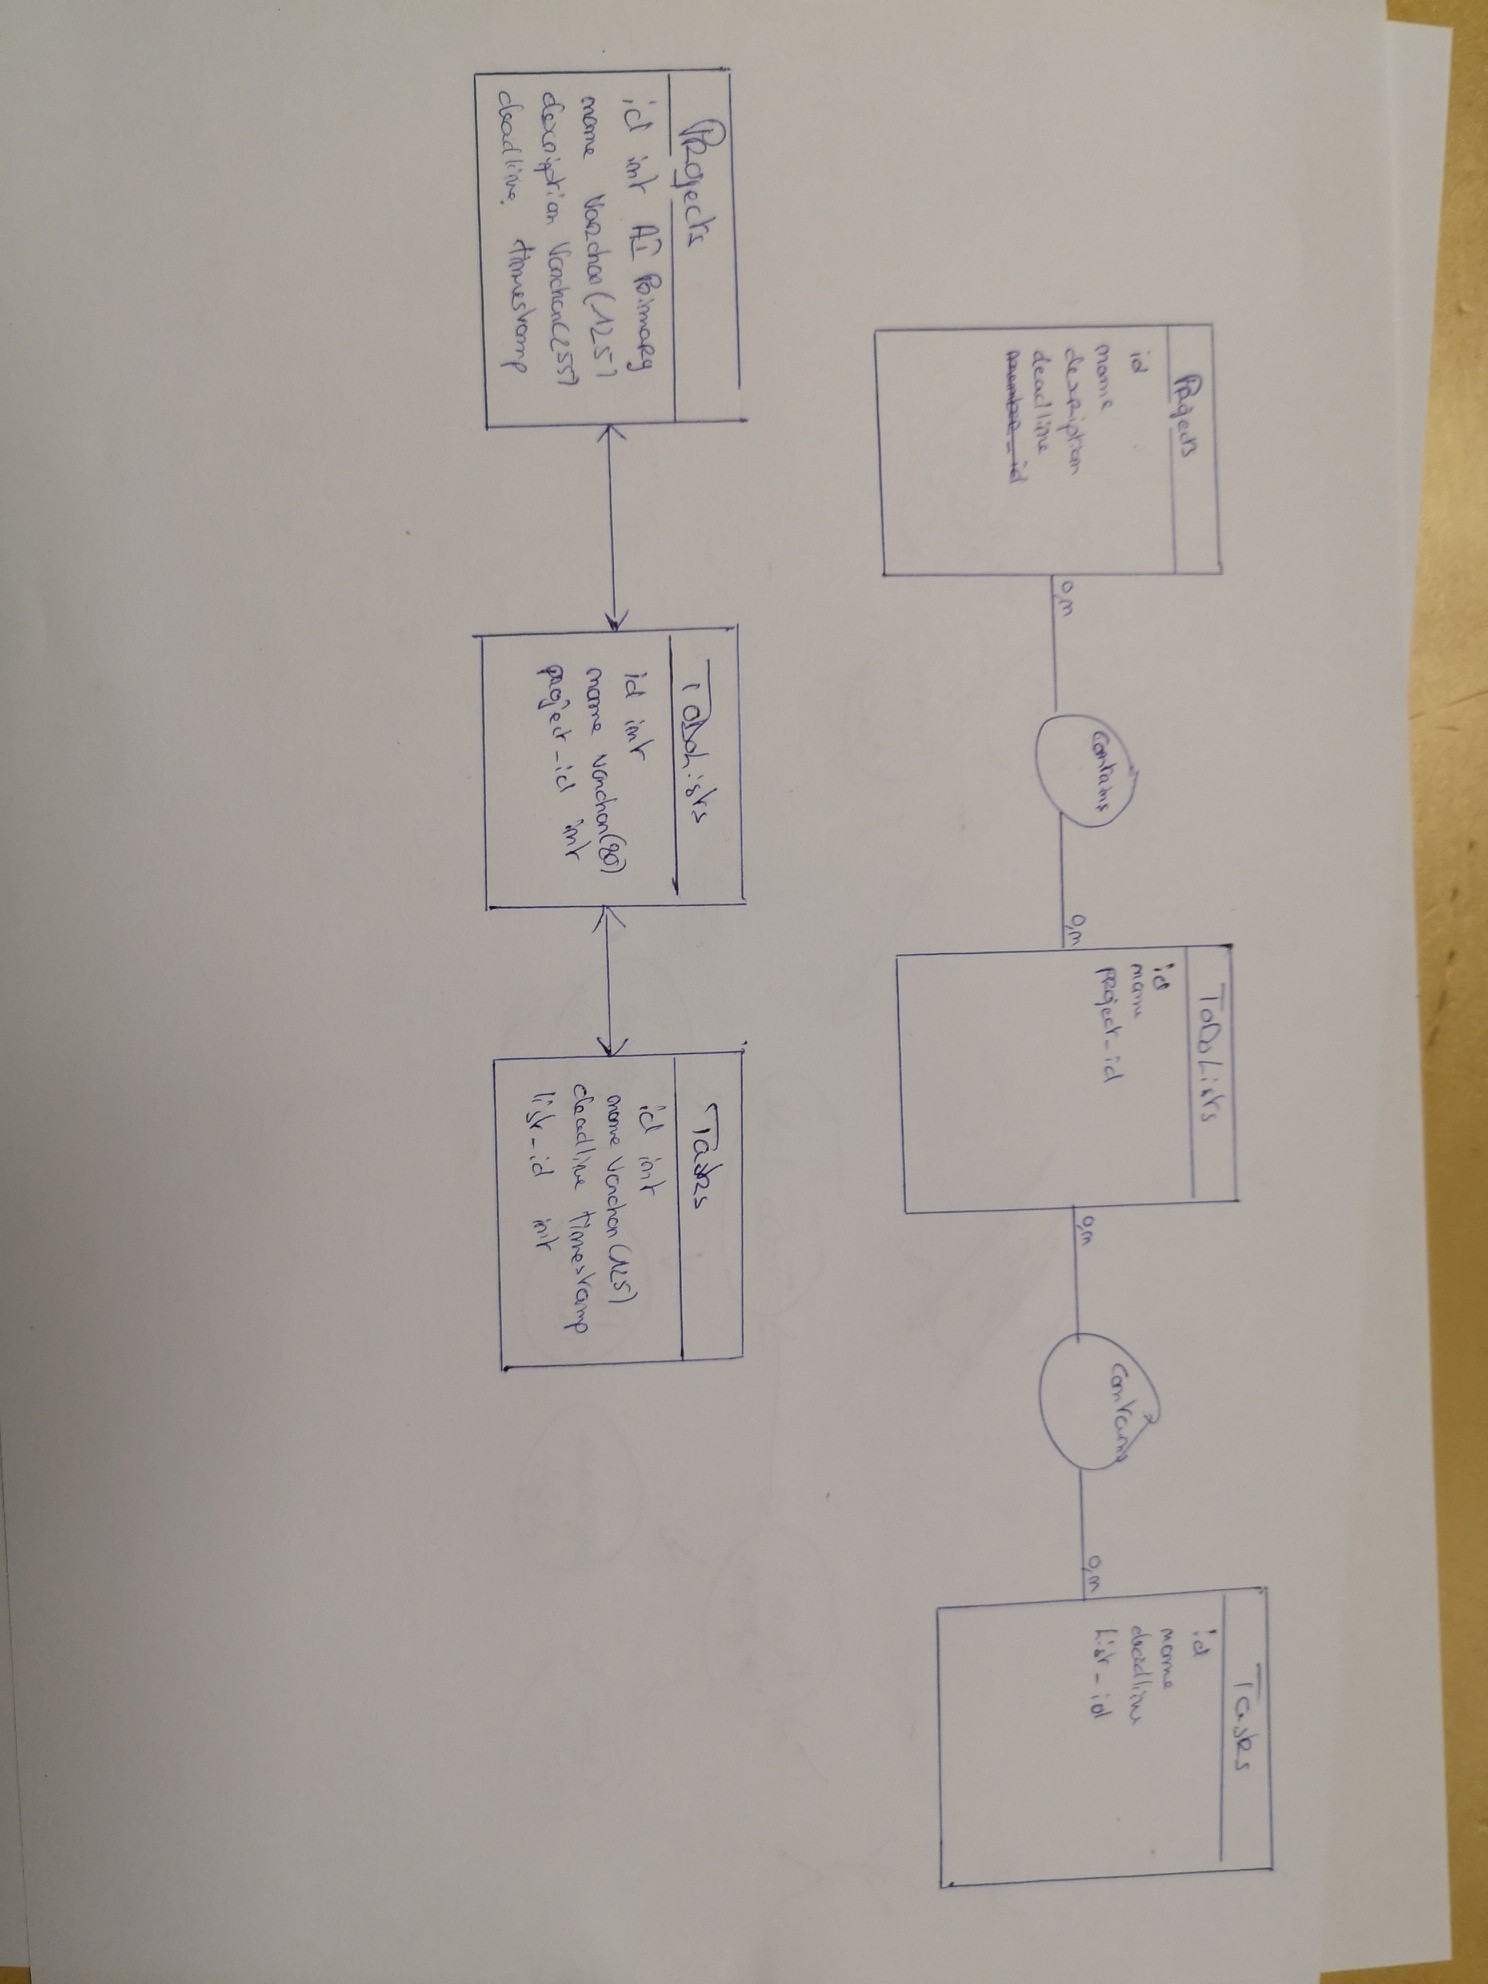 Projects
id
name
description
deadline
0,n
Contains
0,n
ToDoLists
id
name
project_id
0,n
Contains
0,n
Tasks
id
name
deadline
list_id
Projects
id int AI Primary
name Varchar(125)
description Varchar(255)
deadline timestamp
ToDoLists
id int
name varchar(80)
project_id int
Tasks
id int
name varchar(125)
deadline timestamp
list_id int